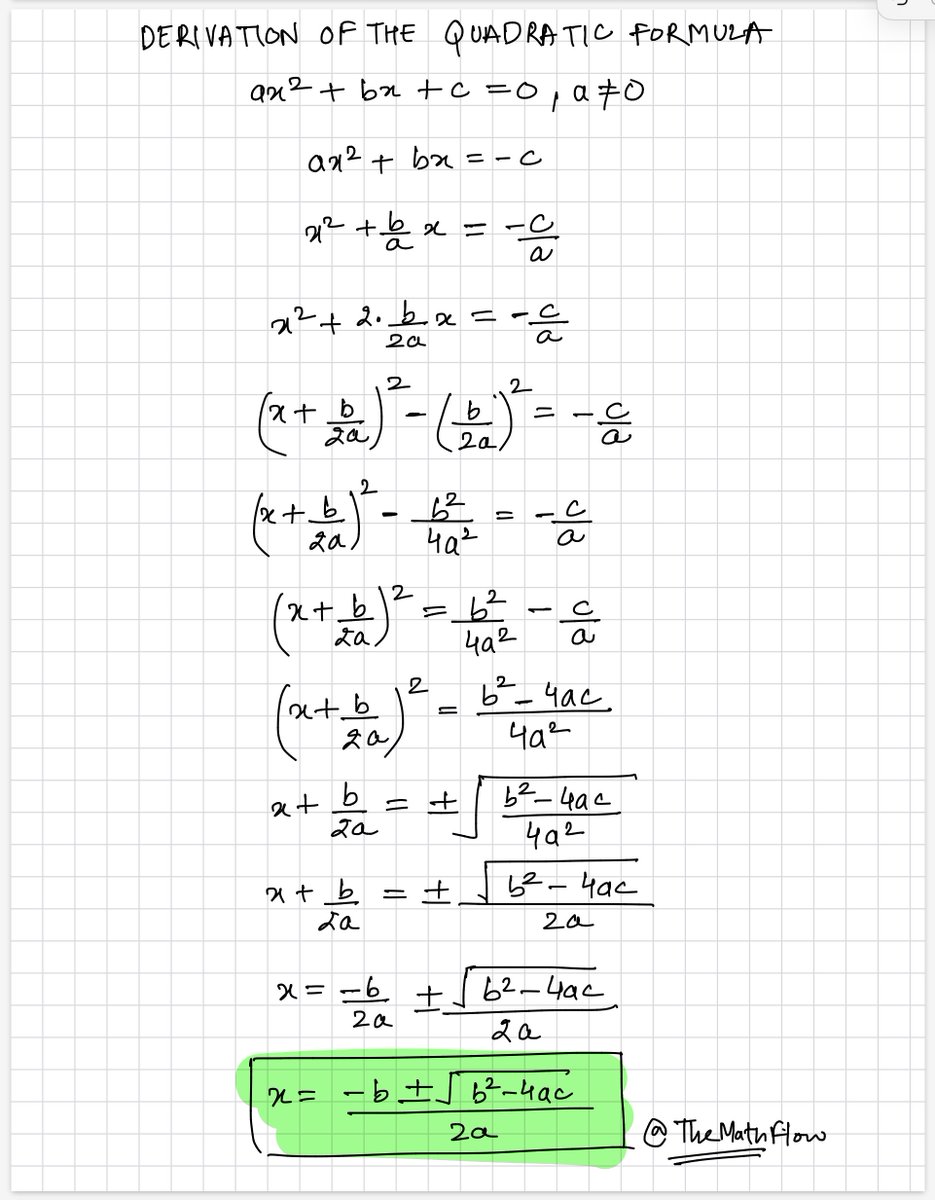 DERIVATION OF THE QUADRATIC FORMULA
ax² + bx + c = 0, a ≠ 0
ax² + bx = -c
x² + b/a x = -c/a
x² + 2·b/2a x = -c/a
(x + b/2a)² - (b/2a)² = -c/a
(x + b/2a)² - b²/4a² = -c/a
(x + b/2a)² = b²/4a² - c/a
(x + b/2a)² = (b² - 4ac)/4a²
x + b/2a = ±√((b² - 4ac)/4a²)
x + b/2a = ± √(b² - 4ac)/2a
x = -b/2a ± √(b² - 4ac)/2a
x = (-b ± √(b² - 4ac))/2a
@TheMathFlow